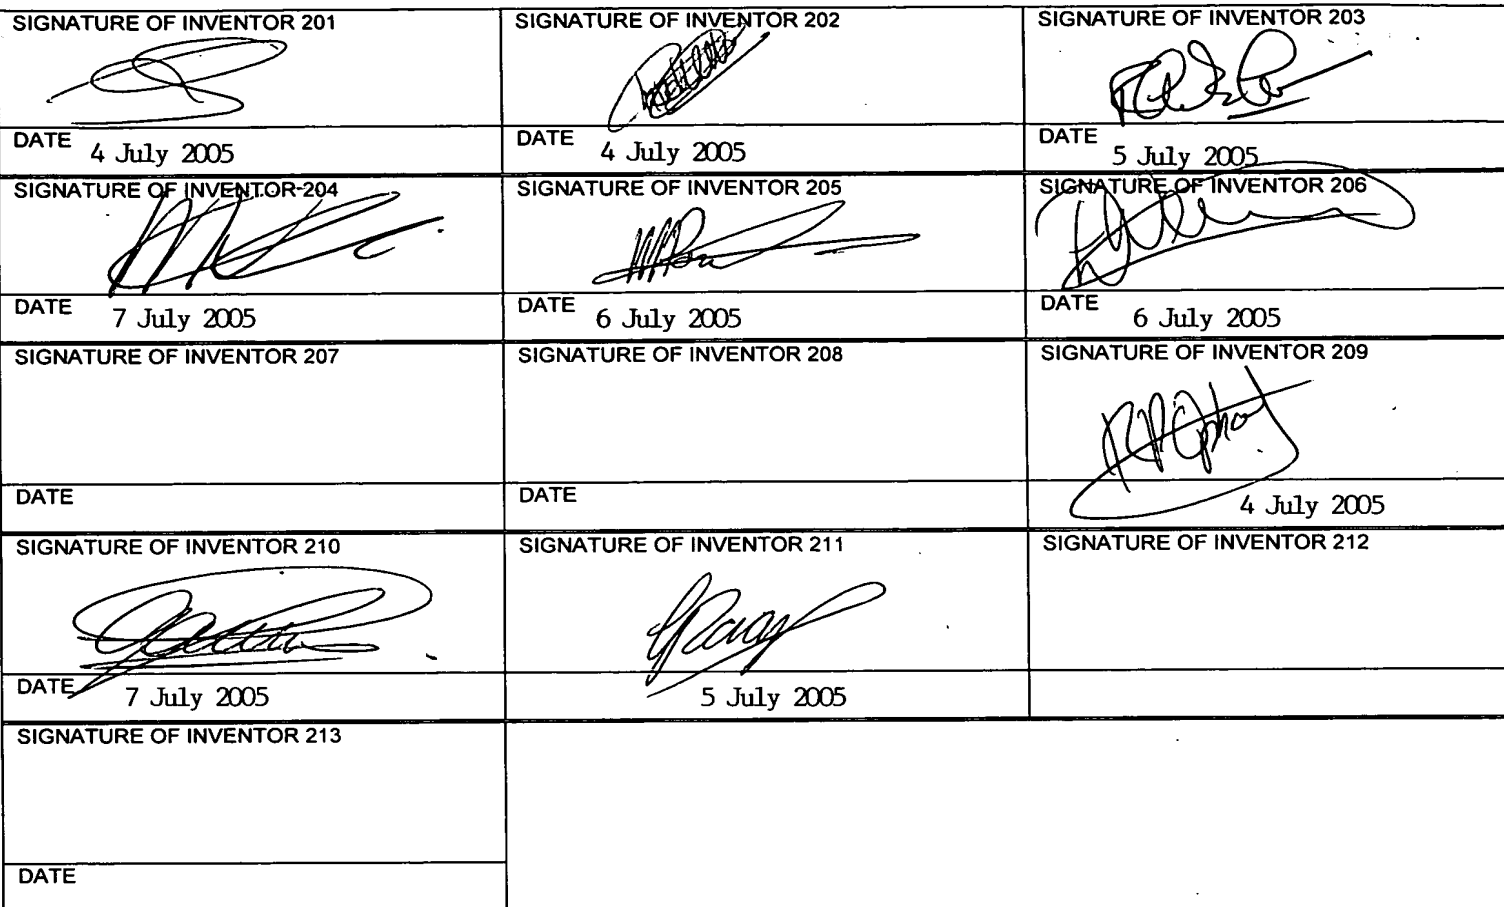 SIGNATURE OF INVENTOR 201
SIGNATURE OF INVENTOR 202
SIGNATURE OF INVENTOR 203
DATE 4 July 2005
DATE 4 July 2005
DATE 5 July 2005
SIGNATURE OF INVENTOR 204
SIGNATURE OF INVENTOR 205
SIGNATURE OF INVENTOR 206
DATE 7 July 2005
DATE 6 July 2005
DATE 6 July 2005
SIGNATURE OF INVENTOR 207
SIGNATURE OF INVENTOR 208
SIGNATURE OF INVENTOR 209
DATE
DATE
4 July 2005
SIGNATURE OF INVENTOR 210
SIGNATURE OF INVENTOR 211
SIGNATURE OF INVENTOR 212
DATE 7 July 2005
5 July 2005
SIGNATURE OF INVENTOR 213
DATE